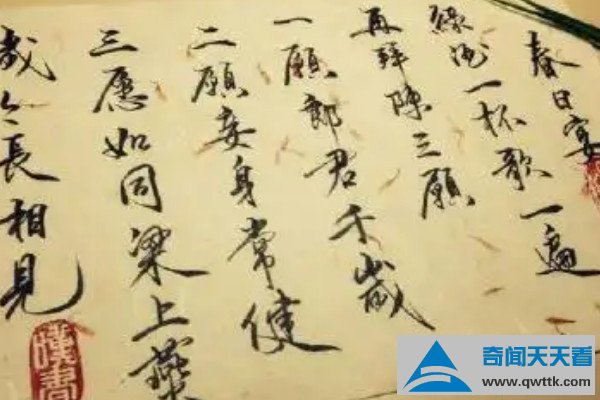 春日宴
綠酒一杯歌一遍
再拜陳三願
一願郎君千歲
二願妾身常健
三愿如同梁上燕
歲々長相見
奇闻天天看
www.qwttk.com